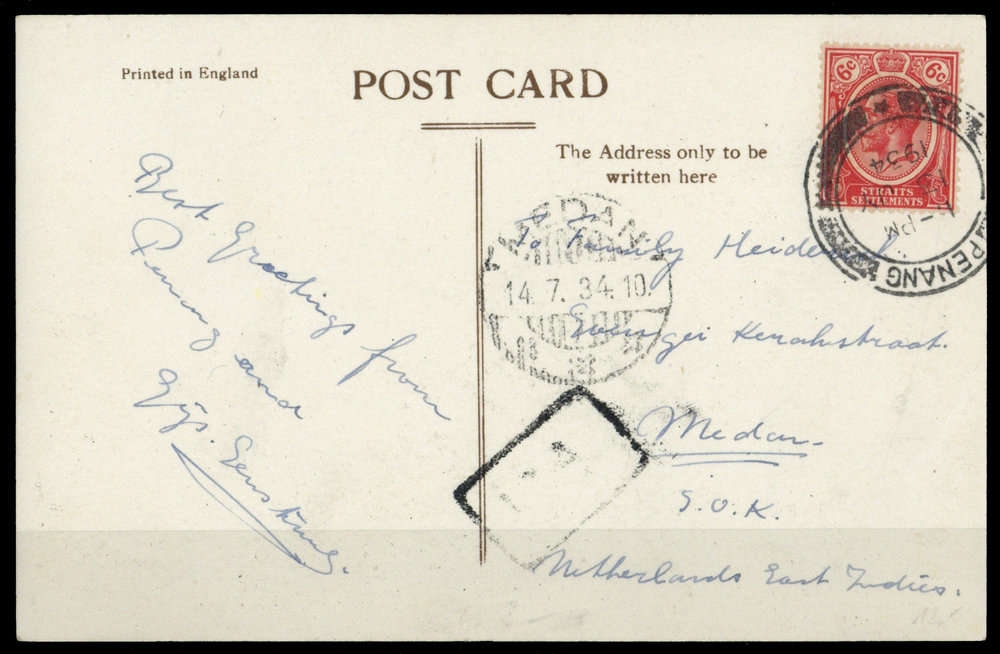 Printed in England
POST CARD
The Address only to be
written here
6c 6c
STRAITS
SETTLEMENTS
PENANG
PM
1934
MEDAN
14.7.34.10.
Best Greetings from
Penang and
To Family
Medan
S.O.K.
Netherlands East Indies.